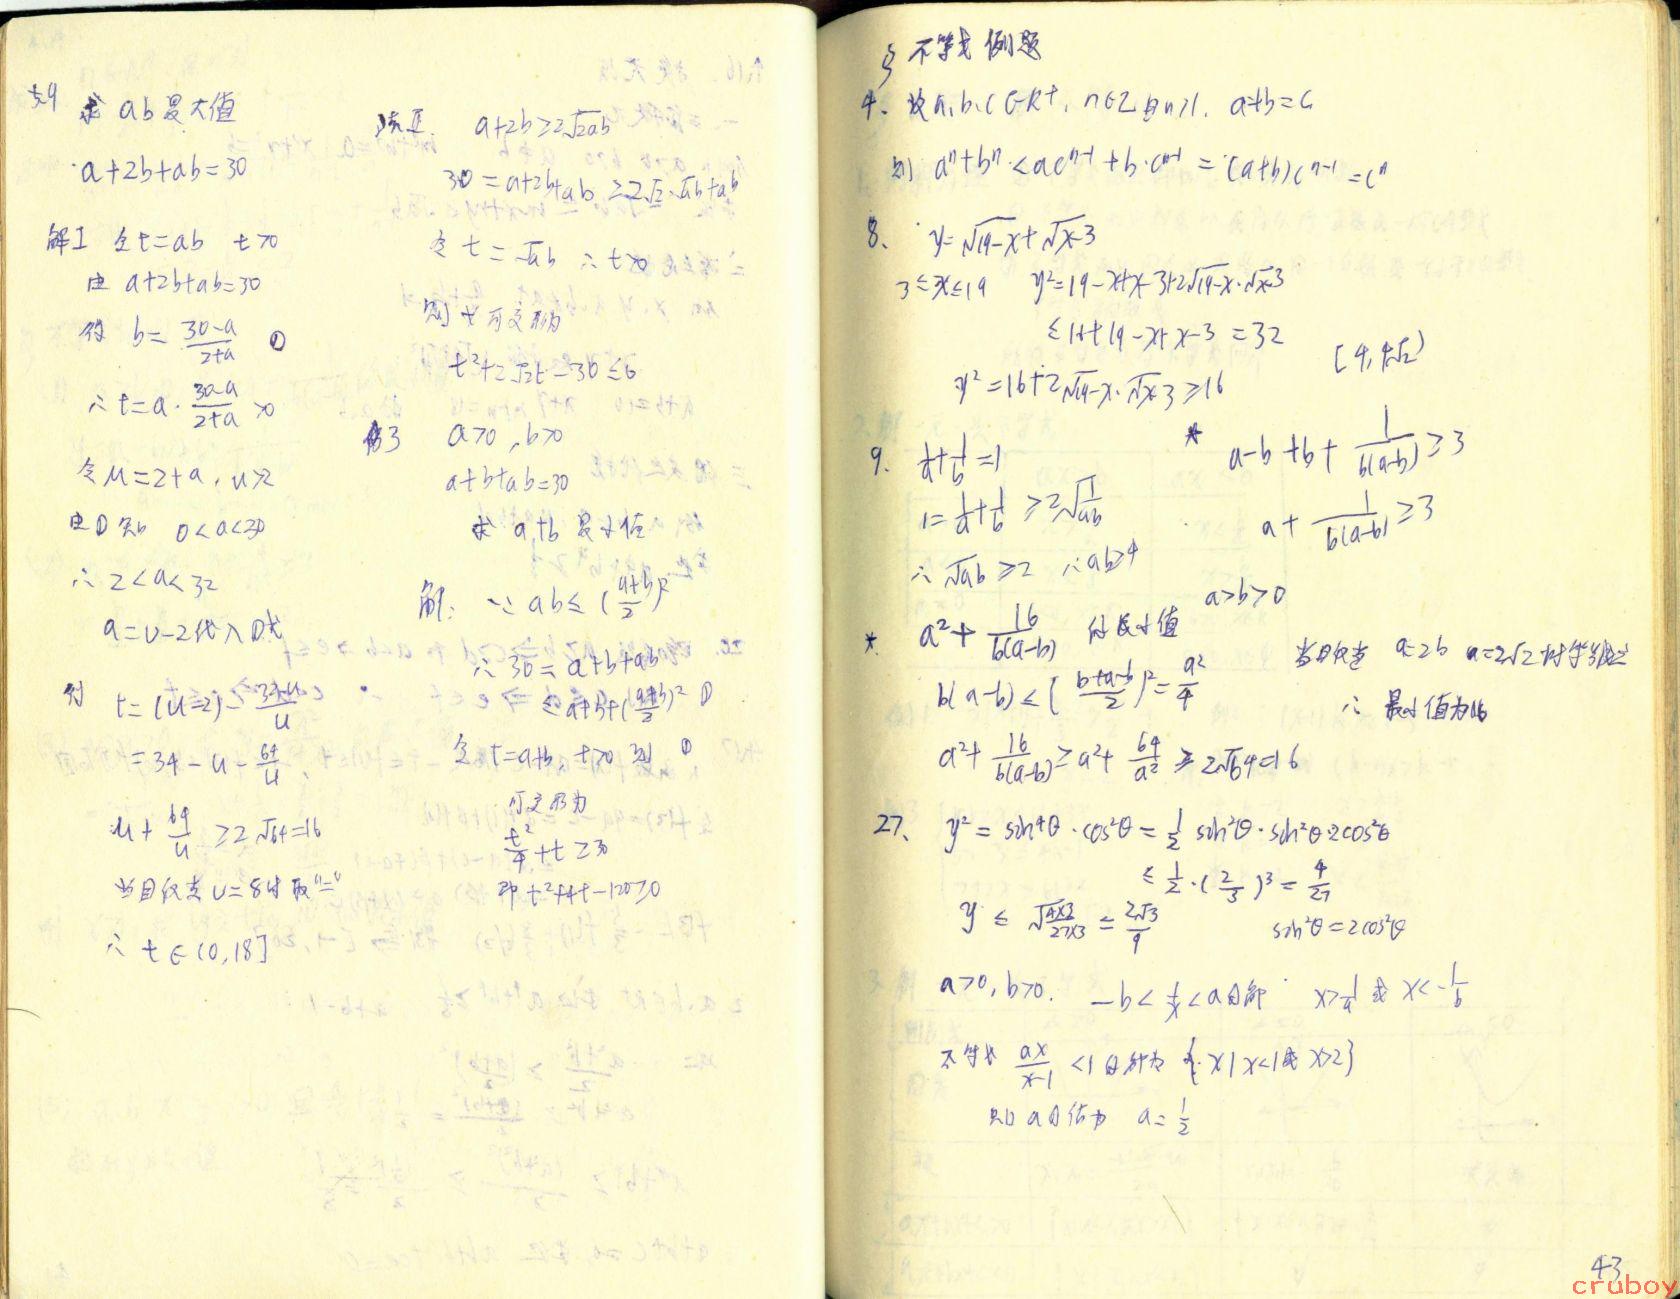 求 ab 最大值
a+2b+ab=30
解I 令t=ab t>0
由 a+2b+ab=30
得 b= \frac{30-a}{2+a} ①
∴t=a·\frac{30-a}{2+a}>0
令u=2+a, u>2
由①知 0<a<30
∴ 2<u<32
a=u-2代入①式
得 t=(u-2)·\frac{32-u}{u}
=34-u-\frac{64}{u}
u+\frac{64}{u} ≥2√64=16
当且仅当u=8时取"="
∴ t∈(0,18]
法II. a+2b≥2√2ab
30=a+2b+ab ≥2√2·√ab+ab
令 t=√ab ∴t>0
则 可变形为
t²+2√2t-30≤0
例3 a>0, b>0
a+b+ab=30
求 a+b 最小值
解: ∵ ab≤(\frac{a+b}{2})²
∴30=a+b+ab
≤a+b+(\frac{a+b}{2})² ①
令t=a+b, t>0 则 ①
可变形为
\frac{t²}{4}+t≥30
即 t²+4t-120≥0
§ 不等式 例题
4. 设a,b,c∈R⁺, n∈Z且n>1, a+b=c
则 aⁿ+bⁿ<acⁿ⁻¹+b·cⁿ⁻¹=(a+b)cⁿ⁻¹=cⁿ
8. y=√19-x+√x-3
3≤x≤19 y²=19-x+x-3+2√19-x·√x-3
≤16+19-x+x-3=32
y²=16+2√19-x·√x-3≥16 [4,4√2]
9. \frac{1}{a}+\frac{1}{b}=1
1=\frac{1}{a}+\frac{1}{b}≥2√\frac{1}{ab}
∴√ab≥2 ∴ab≥4
* a-b+b+\frac{1}{b(a-b)}≥3
a+\frac{1}{b(a-b)}≥3
a>b>0
* a²+\frac{16}{b(a-b)} 的最小值
b(a-b)≤(\frac{b+a-b}{2})²=\frac{a²}{4}
a²+\frac{16}{b(a-b)}≥a²+\frac{64}{a²}≥2√64=16
当且仅当 a=2b a=2√2时等号成立
∴ 最小值为16
27. y²=sin⁴θ·cos²θ=\frac{1}{2}sin²θ·sin²θ·2cos²θ
≤\frac{1}{2}·(\frac{2}{3})³=\frac{4}{27}
y≤√\frac{4×3}{27×3}≤\frac{2√3}{9} sin²θ=2cos²θ
a>0,b>0. -b<\frac{1}{x}<a的解 x>\frac{1}{a}或 x<-\frac{1}{b}
不等式 \frac{ax}{x-1}<1的解为 {x|x<1或x>2}
则a的值为 a=\frac{1}{2}
43
cruboy